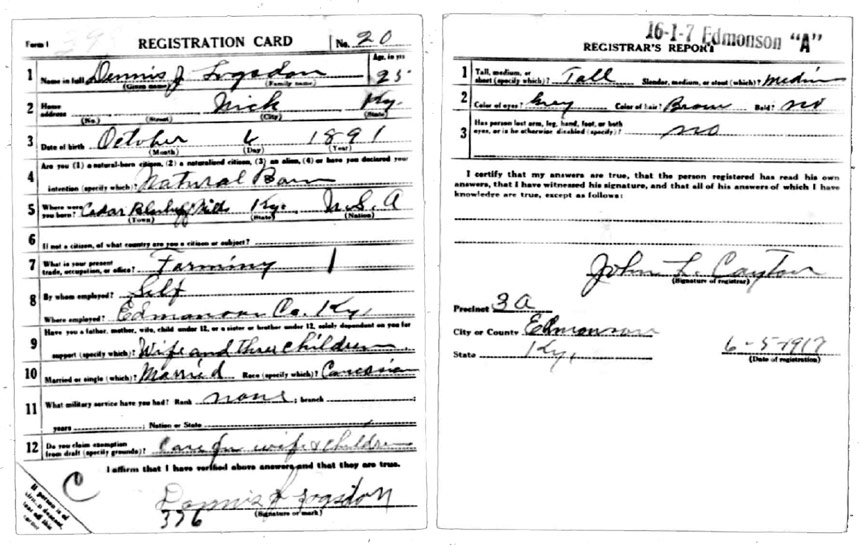 Form 1 REGISTRATION CARD No. 20
1 Name in full Dennis J Logsdon Age, in yrs 25
(Given name) (Family name)
2 Home address Nick Ky.
(No.) (Street) (City) (State)
3 Date of birth October 6 1891
(Month) (Day) (Year)
Are you (1) a natural-born citizen, (2) a naturalized citizen, (3) an alien, (4) or have you declared your
4 intention (specify which)? Natural Born
5 Where were you born? Cedar Mills Ky. U.S.A
(Town) (State) (Nation)
6 If not a citizen, of what country are you a citizen or subject?
7 What is your present trade, occupation, or office? Farming 1
8 By whom employed? Self
Where employed? Edmonson Co. Ky,
9 Have you a father, mother, wife, child under 12, or a sister or brother under 12, solely dependent on you for
support (specify which)? Wife and three children
10 Married or single (which)? Married Race (specify which)? Caucasian
11 What military service have you had? Rank none ; branch
years ; Nation or State
12 Do you claim exemption from draft (specify grounds)? Care for wife & children
I affirm that I have verified above answers and that they are true.
C
If person is of
Dennis J Logsdon
376 (Signature or mark)
16-1-7 Edmonson "A"
REGISTRAR'S REPORT
1 Tall, medium, or short (specify which)? Tall Slender, medium, or stout (which)? Medium
2 Color of eyes? Grey Color of hair? Brown Bald? No
3 Has person lost arm, leg, hand, foot, or both eyes, or is he otherwise disabled (specify)? no
I certify that my answers are true, that the person registered has read his own
answers, that I have witnessed his signature, and that all of his answers of which I have
knowledge are true, except as follows:
John L.
(Signature of registrar)
Precinct 3A
City or County Edmonson
State Ky, 6-5-1917
(Date of registration)